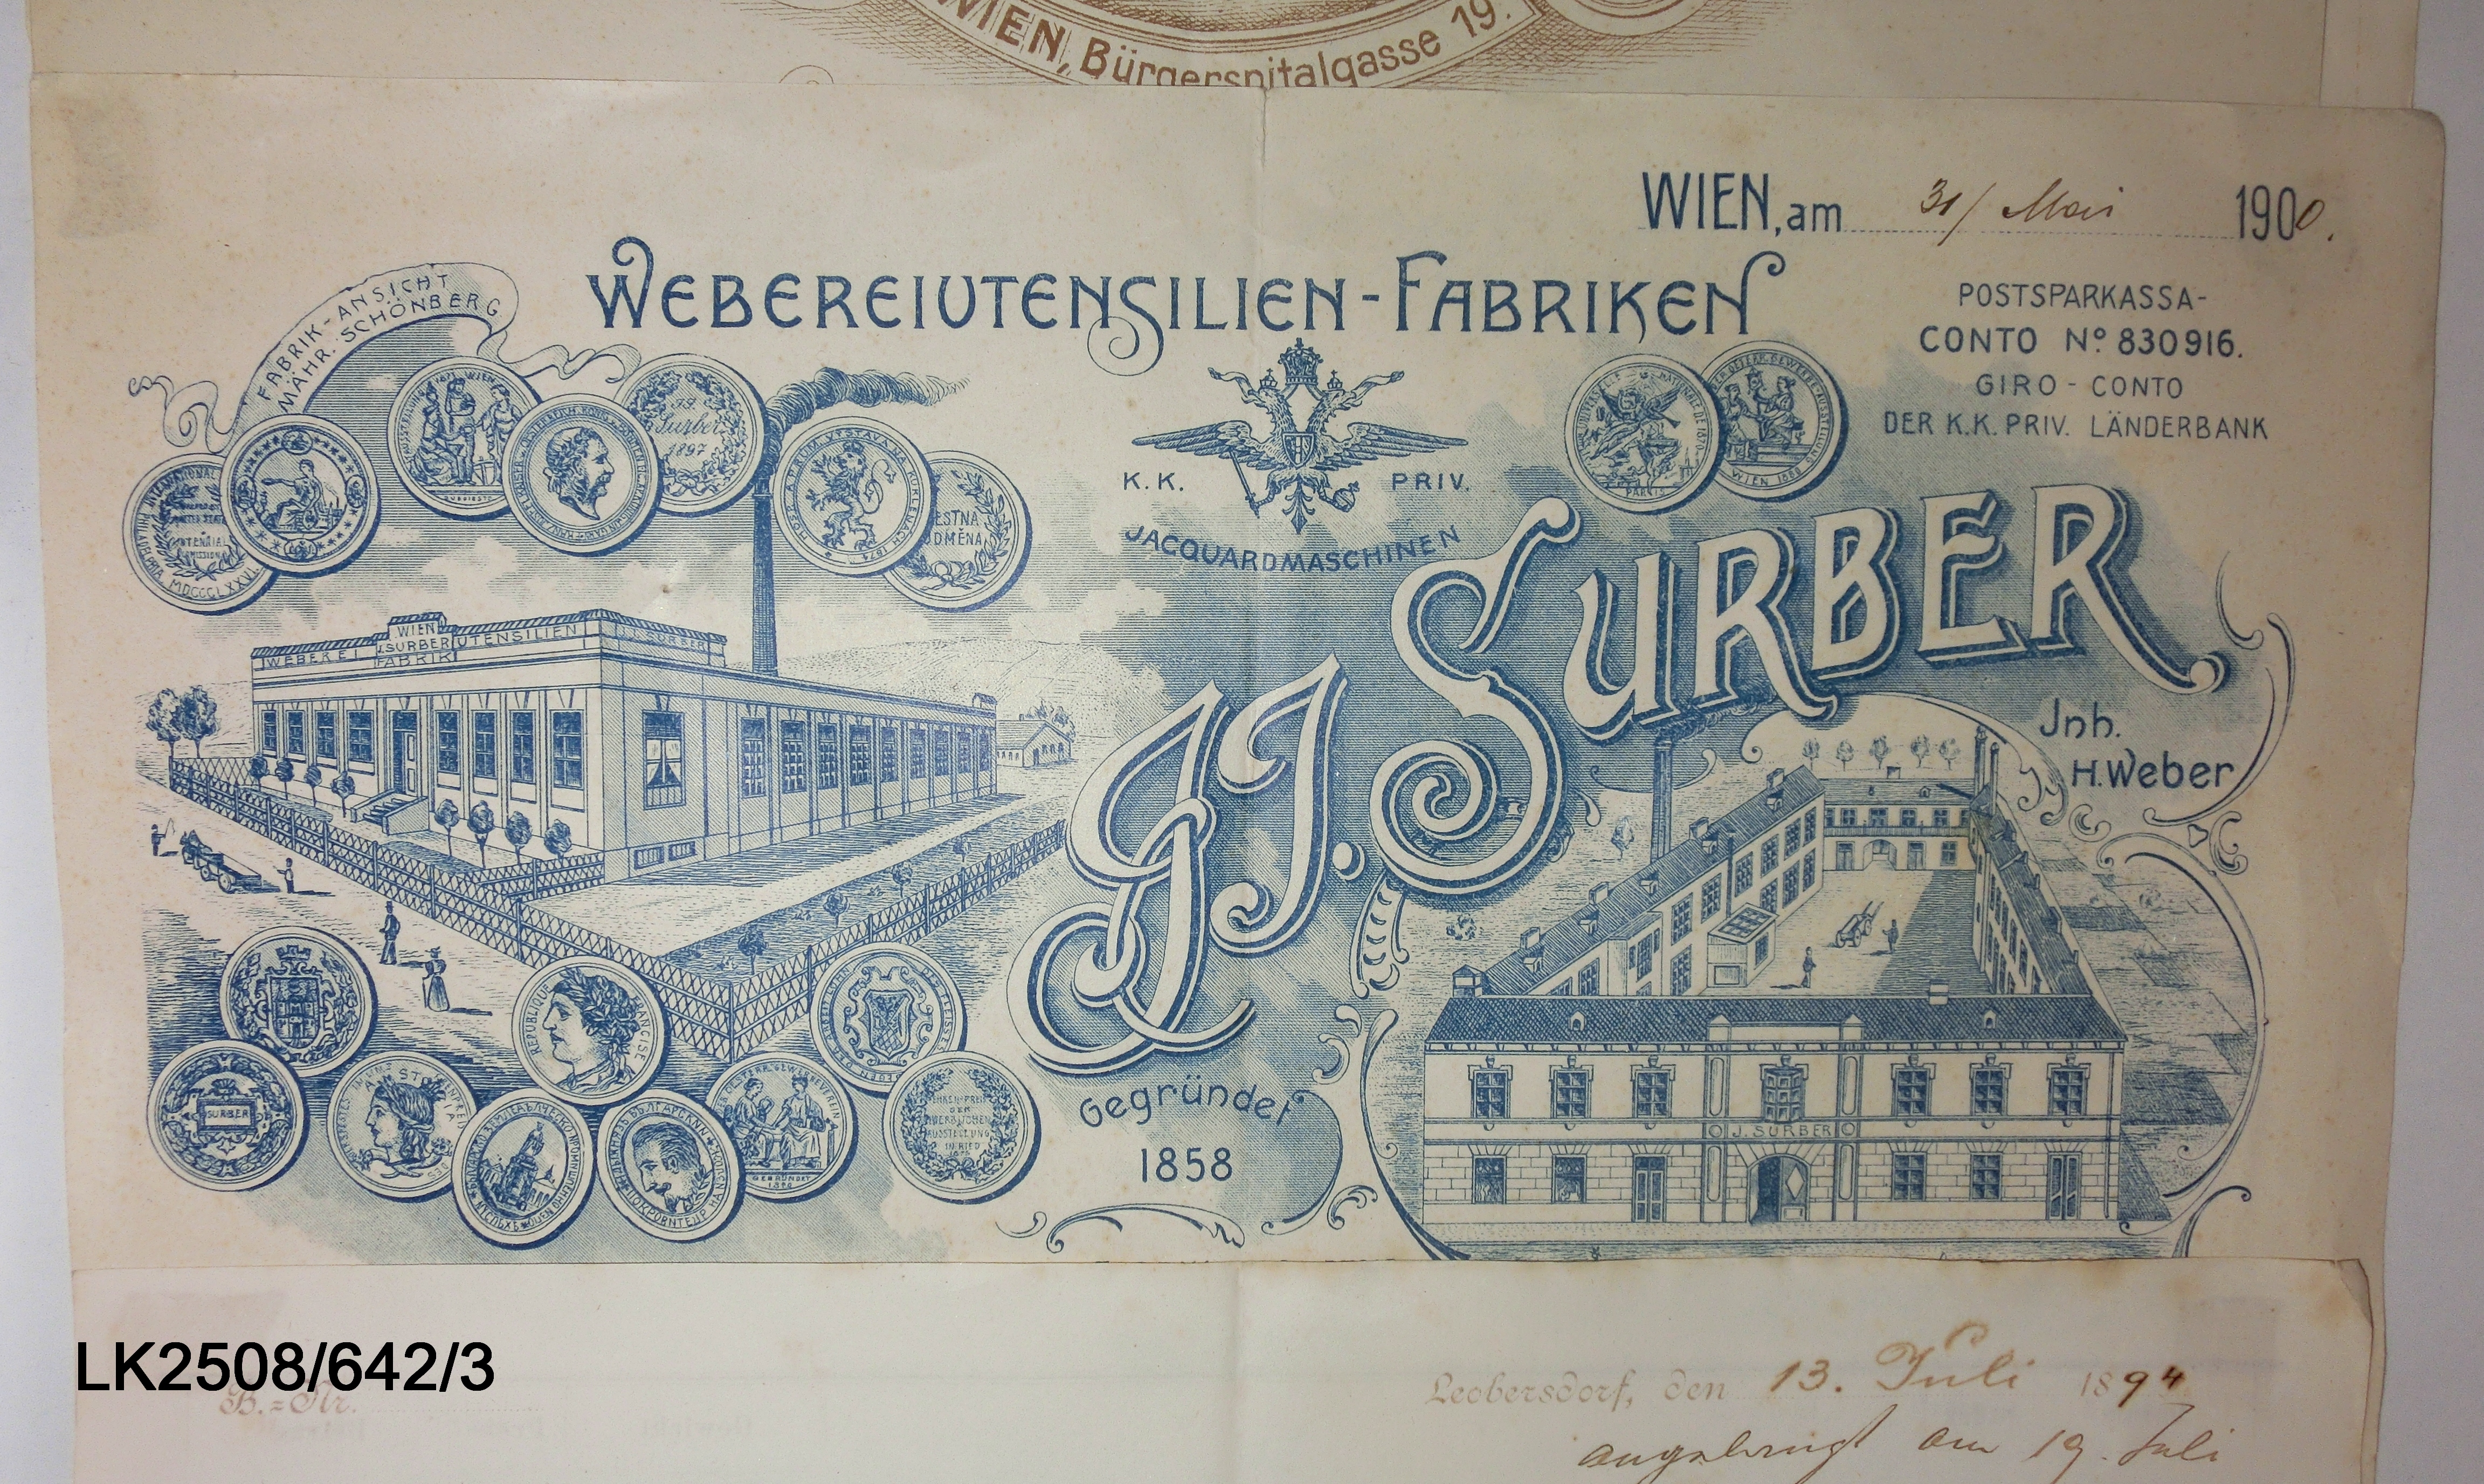 WIEN, Bürgerspitalgasse 19.
WIEN, am 31/ Mai 1900.
WEBEREIUTENSILIEN-FABRIKEN
POSTSPARKASSA-
CONTO Nº 830916.
GIRO-CONTO
DER K.K. PRIV. LÄNDERBANK
FABRIK-ANSICHT
MÄHR. SCHÖNBERG
Surber
1897
K.K. PRIV.
JACQUARDMASCHINEN
PARIS
WIEN 1888
J. SURBER
Jnh.
H. Weber
WIEN
WEBEREI J. SURBER UTENSILIEN J. SURBER
FABRIK
REPUBLIQUE FRANCAISE
SURBER
GEGRÜNDET
Gegründet
1858
J. SURBER
LK2508/642/3
B.=Nr.
Leobersdorf, den 13. Juli 1894
am 19. Juli